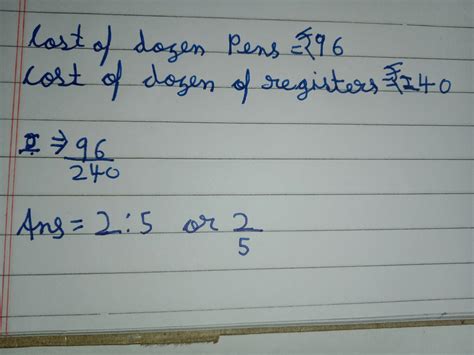 Cost of dozen Pens = ₹96
Cost of dozen of registers = ₹240
⇒ 96
240
Ans = 2:5 or 2
5